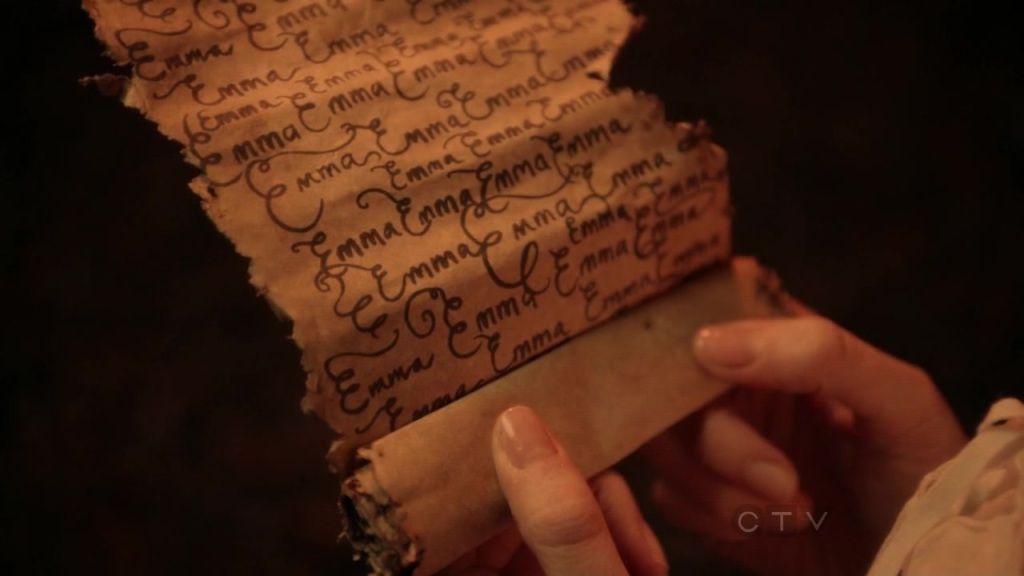 Emma Emma Emma
Emma Emma Emma
Emma Emma Emma Emma
Emma Emma Emma Emma
Emma Emma Emma Emma
Emma Emma Emma Emma
Emma Emma Emma Emma
Emma Emma Emma Emma
Emma Emma Emma
Emma Emma Emma
Emma
CTV